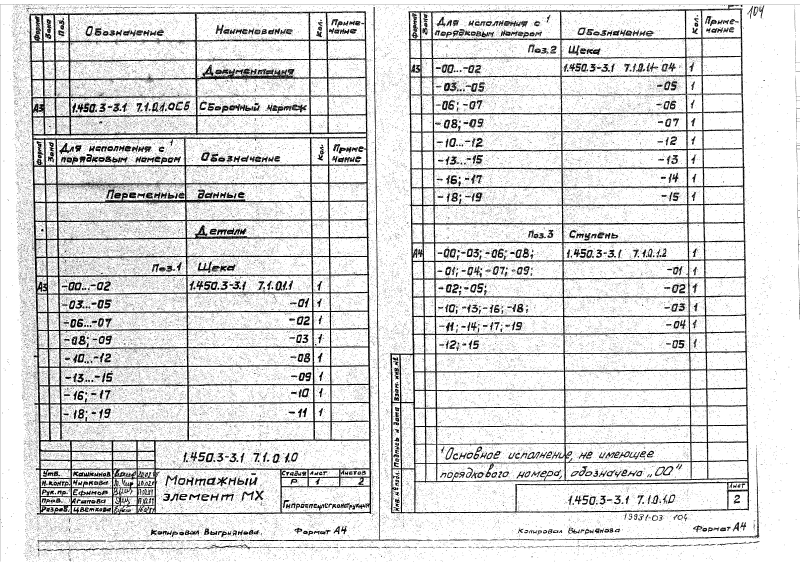 Формат Зона Поз. Обозначение Наименование Кол. Приме-чание
Документация
А3 1.450.3-3.1 7.1.0.1.0СБ Сборочный чертеж
Формат Зона Для исполнения с порядковым номером ¹ Обозначение Кол. Приме-чание
Переменные данные
Детали
Поз.1 Щека
А3 -00...-02 1.450.3-3.1 7.1.0.1.1 1
-03...-05 -01 1
-06...-07 -02 1
-08;-09 -03 1
-10...-12 -08 1
-13...-15 -09 1
-16;-17 -10 1
-18;-19 -11 1
1.450.3-3.1 7.1.0.1.0
Утв. Кашников
Н.контр. Чиркова
Рук.пр. Ефимов
Пров. Агапова
Разраб. Цветкова
Монтажный
элемент МХ
Стадия Лист Листов
Р 1 2
Гипроспецлегконструкция
Копировал Выгриянова. Формат А4
104
Формат Зона Для исполнения с ¹ порядковым номером Обозначение Кол. Приме-чание
Поз.2 Щека
А3 -00...-02 1.450.3-3.1 7.1.0.1.1-04 1
-03...-05 -05 1
-06;-07 -06 1
-08;-09 -07 1
-10...-12 -12 1
-13...-15 -13 1
-16;-17 -14 1
-18;-19 -15 1
Поз.3 Ступень
А4 -00;-03;-06;-08; 1.450.3-3.1 7.1.0.1.2 1
-01;-04;-07;-09; -01 1
-02;-05; -02 1
-10;-13;-16;-18; -03 1
-11;-14;-17;-19 -04 1
-12;-15 -05 1
¹Основное исполнение, не имеющее
порядкового номера, обозначена „00"
Инв.№подл. Подпись и дата Взам. инв.№
1.450.3-3.1 7.1.0.1.0
Лист
2
19931-03 104
Копировал Выгриянова Формат А4